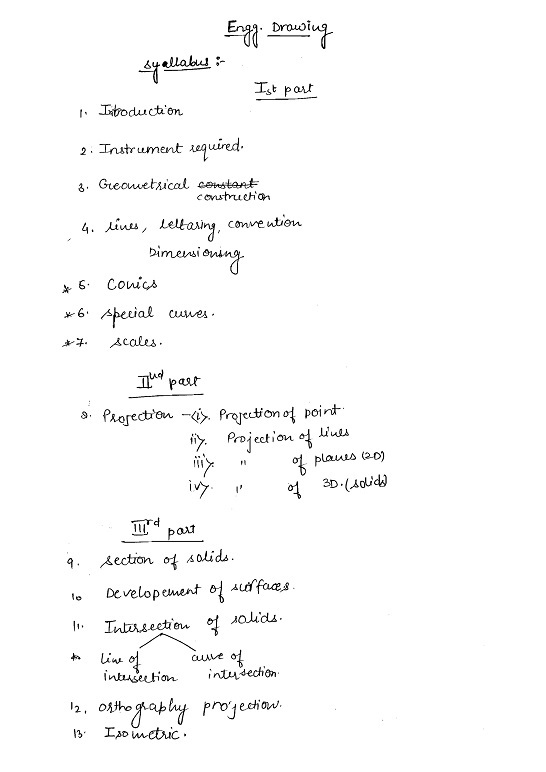 Engg. Drawing
syallabus :-
Ist part
1. Itroduction
2. Instrument required.
3. Geometrical constant
construction
4. lines, lettaring, convention
Dimensioning
* 5. Conics
* 6. special curves.
* 7. scales.
IInd part
8. Projection - (i). Projection of point.
ii). Projection of lines
iii). " of planes (2D)
iv). " of 3D. (solids)
IIIrd part
9. section of solids.
10 Developement of surfaces.
11. Intersection of solids.
* line of curve of
intersection intersection.
12. orthography projection.
13. Isometric.